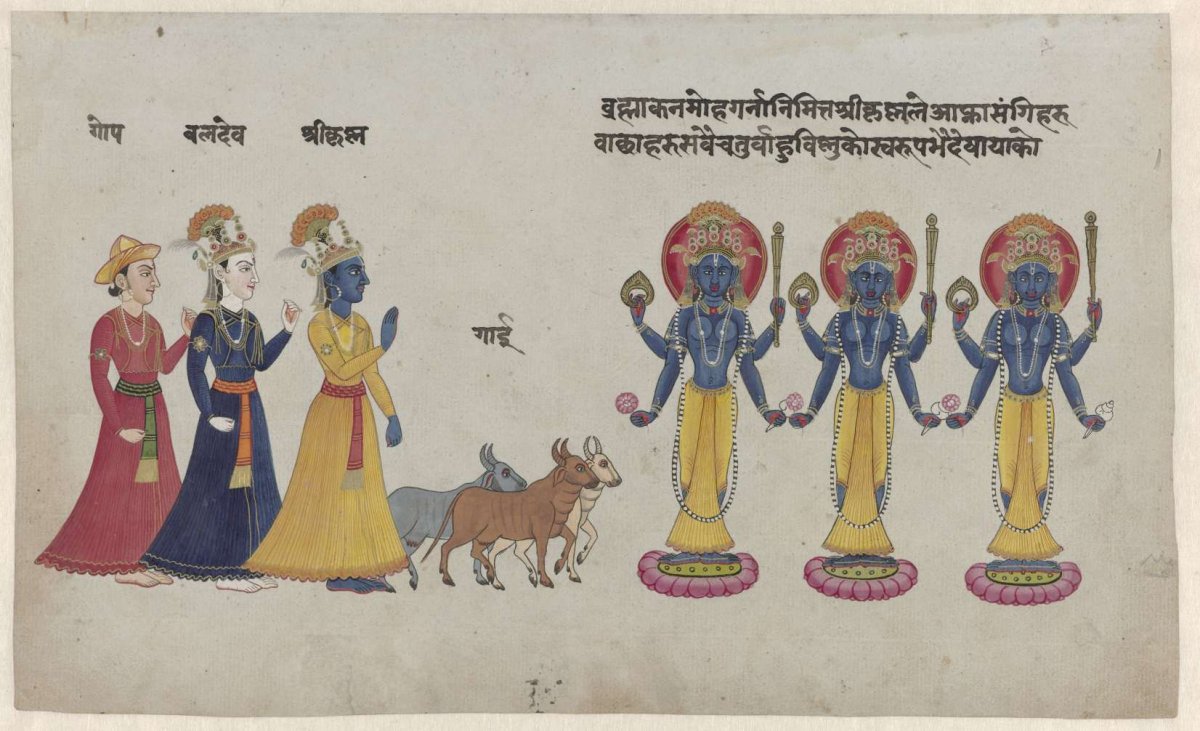 गोप
बलदेव
श्रीकृष्ण
गाई
व्रह्माकन मोह गर्ना निमित्त श्रीकृष्णले आफ्ना संगिहरु
वाछाहरु सवै चतुर्वाहु विष्णुको स्वरुप भै देषायाको